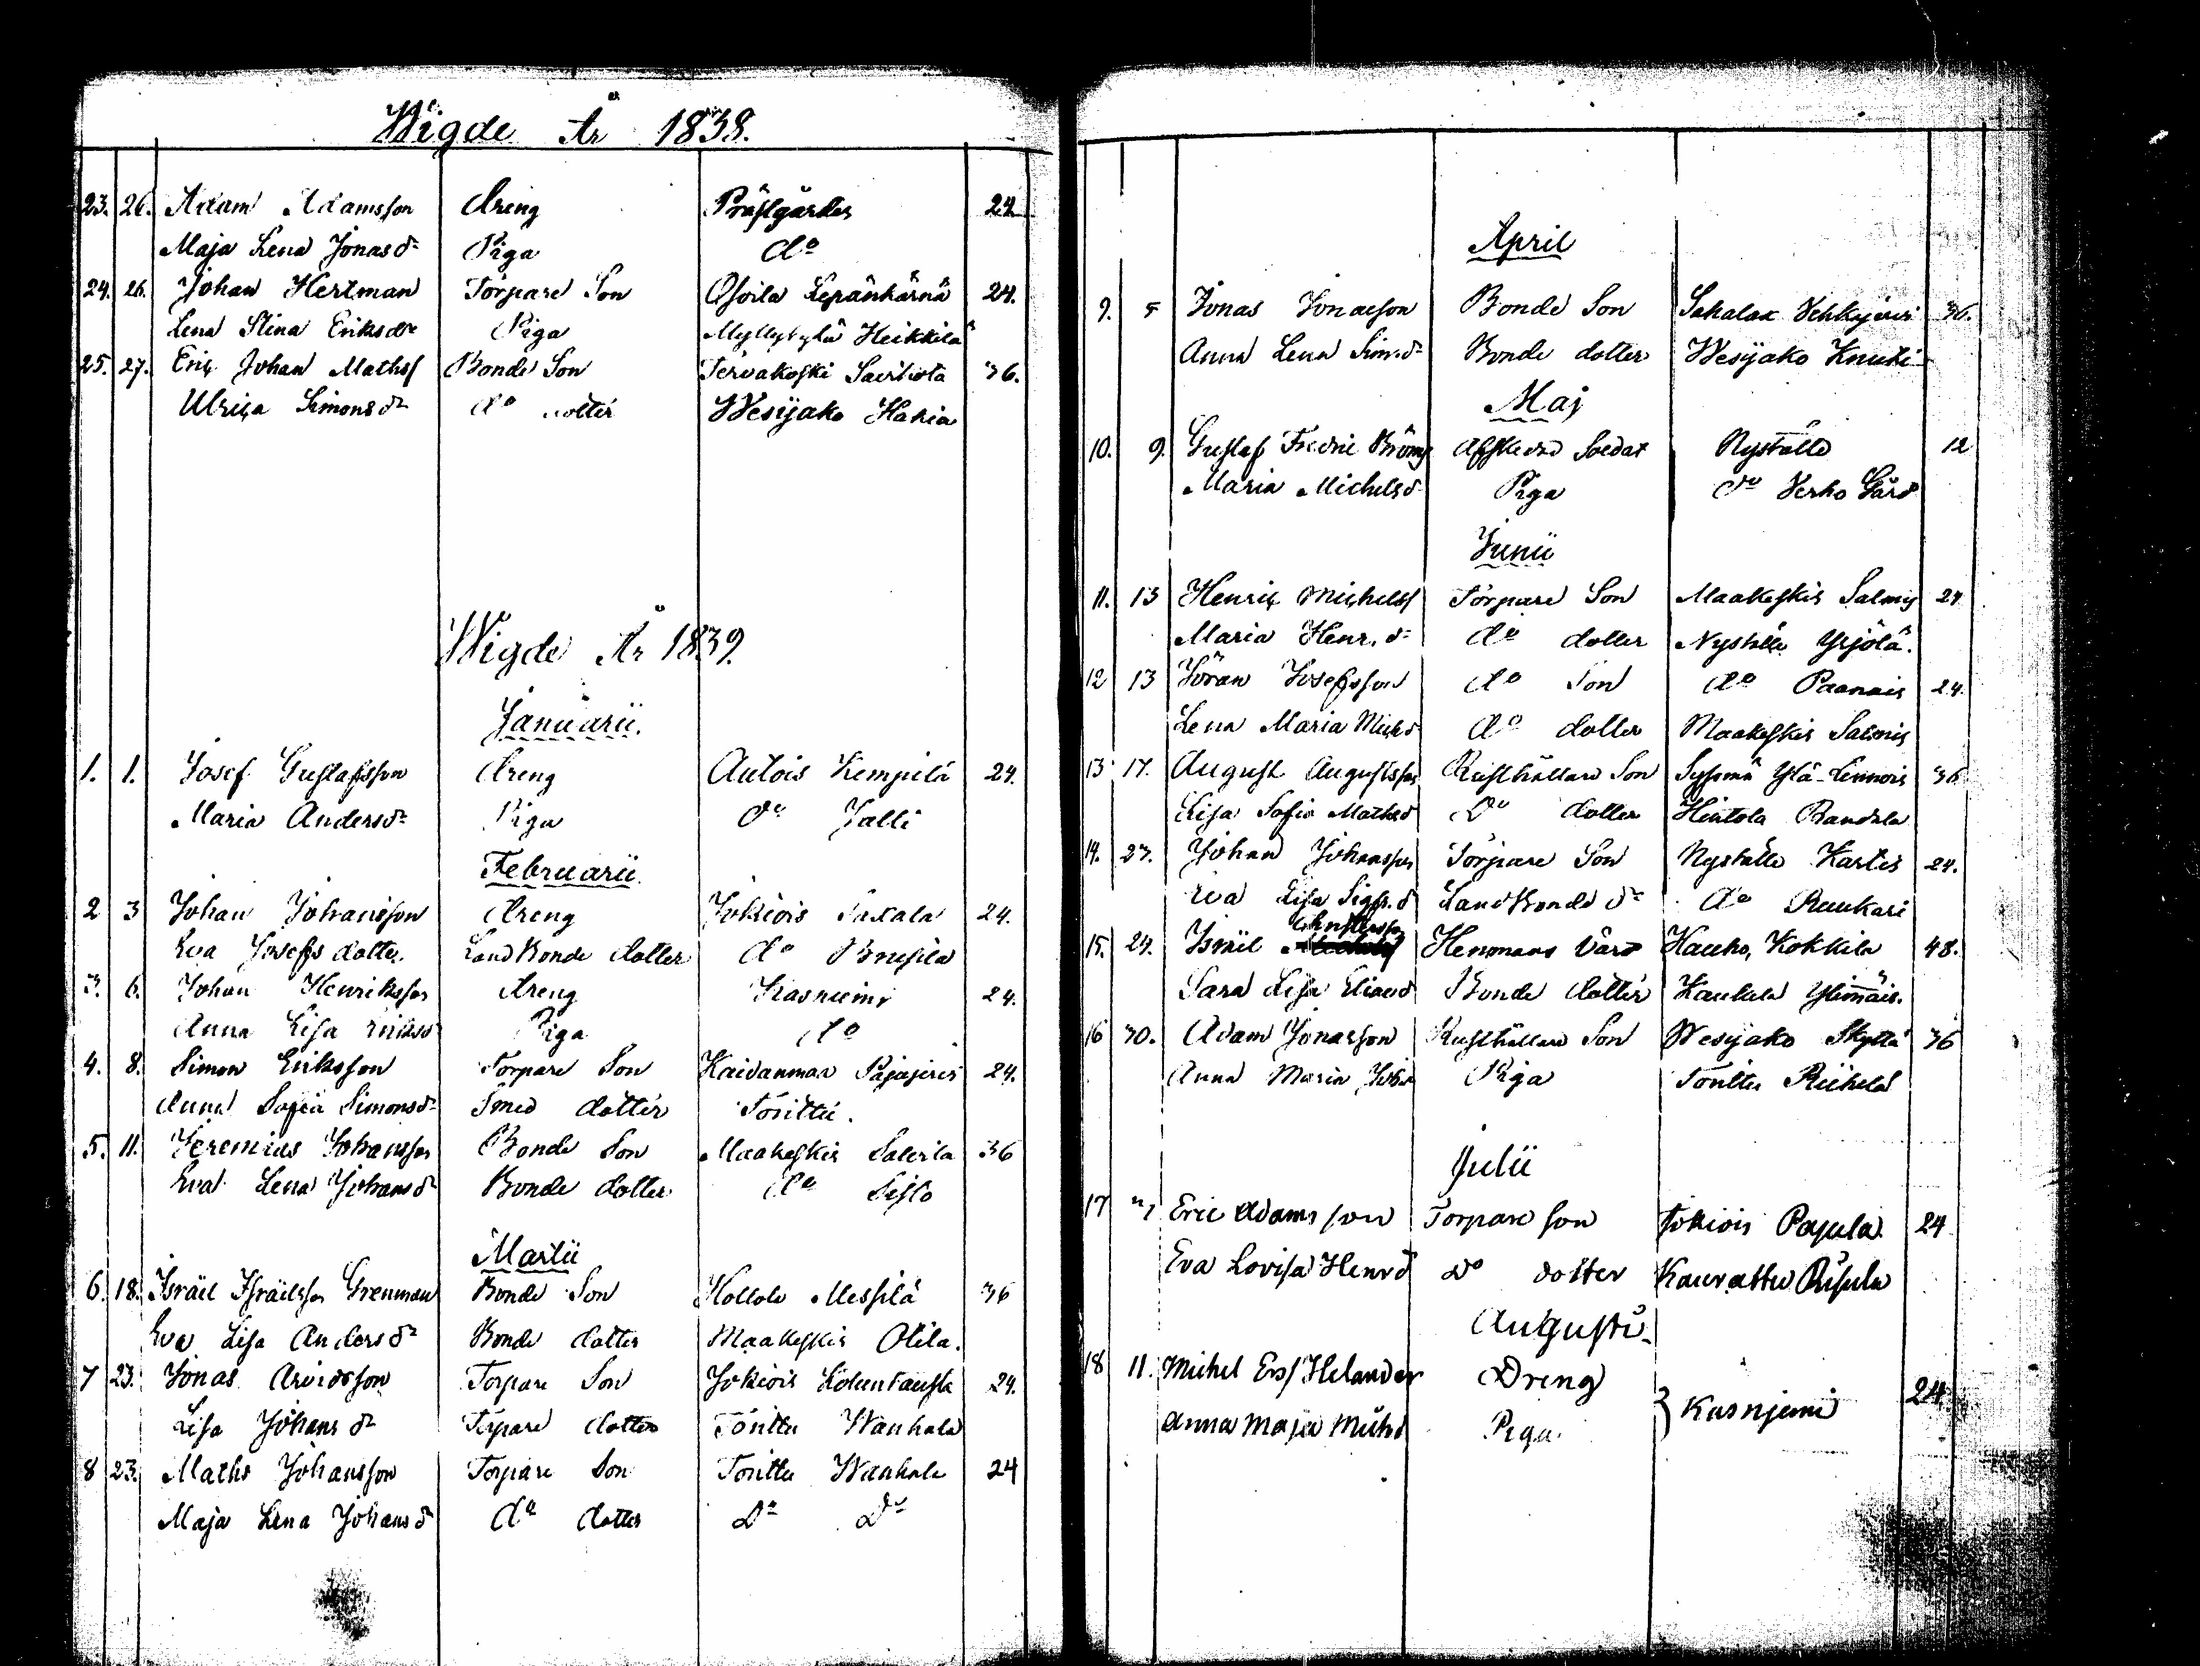 Wigde År 1838.
23. 26. Adam Adamsson Dreng Prästgården 24.
Maja Lena Jonasdr Piga do
24. 26. Johan Hertman Torpare Son Osoila Lepänkärnä 24.
Lena Stina Eriksdr Piga Myllykylä Heikkilä
25. 27. Eric Johan Mathss Bonde Son Tervakoski 36.
Ulrica Simonsdr do dotter Wesijako Hakia
Wigde År 1839.
Januarii.
1. 1. Josef Gustafsson Dreng Autois Kempilä 24.
Maria Andersdr Piga do Jalli
Februarii.
2 3 Johan Johansson Dreng Jokiois Saxala 24.
Eva Josefs dotter. Land Bonde dotter do Brusila
3. 6. Johan Henriksson Dreng Kasniemi 24.
Anna Lisa Piga do
4. 8. Simon Eriksson Torpare Son Kaidanmaa Pajajervi 24.
Anna Sofia Simonsdr Smed dotter Tönittu.
5. 11. Jeremias Johansson Bonde Son Maakeskis Saloila 36
Eva Lena Johansdr Bonde dotter do Sislo
Martii
6. 18. Israel Israelsson Grenman Bonde Son Hollola Messilä 36
Eva Lisa Andersdr Bonde dotter Maakeskis Olila.
7 23. Jonas Arvidsson Torpare Son Jokiois 24.
Lisa Johansdr Torpare dotter Tönittu Wanhala
8 23. Maths Johansson Torpare Son Tönittu Wanhala 24
Maja Lena Johansdr do dotter Do Do
April
9. 5 Jonas Jonasson Bonde Son Sakalax Vehkajervi 36.
Anna Lena Sim.dr Bonde dotter Wesijako Knuti
Maj
10. 9. Gustaf Fredric Afskedad Soldat Nystölä 12
Maria Michelsd Piga do Verho Gård
Junii
11. 13 Henric Michelss Torpare Son Maakeskis Salmis 24
Maria Henr.dr do dotter Nystölä Yrjölä.
12 13 Jöran Josefsson do Son do Paanais 24.
Lena Maria Michsd do dotter Maakeskis Salmis
13 17. August Augustsson Rusthållare Son Sysmä Ylä-Lennois 36
Lisa Sofia Mathsd Do dotter Hietola Pandala
14. 23. Johan Johansson Torpare Son Nystölä Kartis 24.
Eva Lisa Sigfr.d LandBonde dr do Ruukari
15. 24. Israel Christersson Hemmans Våro Hauho, Kokkila 48.
Sara Lisa Eliaed Bonde dotter Kaukela Ylimäis.
16 30. Adam Jonasson Rusthållare Son Wesijako Skyttä 36
Anna Maria Piga Tönittu Rikkelä
Julii
17 Eric Adamsson Torpare son Jokiois Papula 24
Eva Lovisa Henrd Do dotter Kaurattu
Augusti.
18 11. Michel Ers/Helander Dreng Kasnjemi 24.
Anna Maja Michd Piga